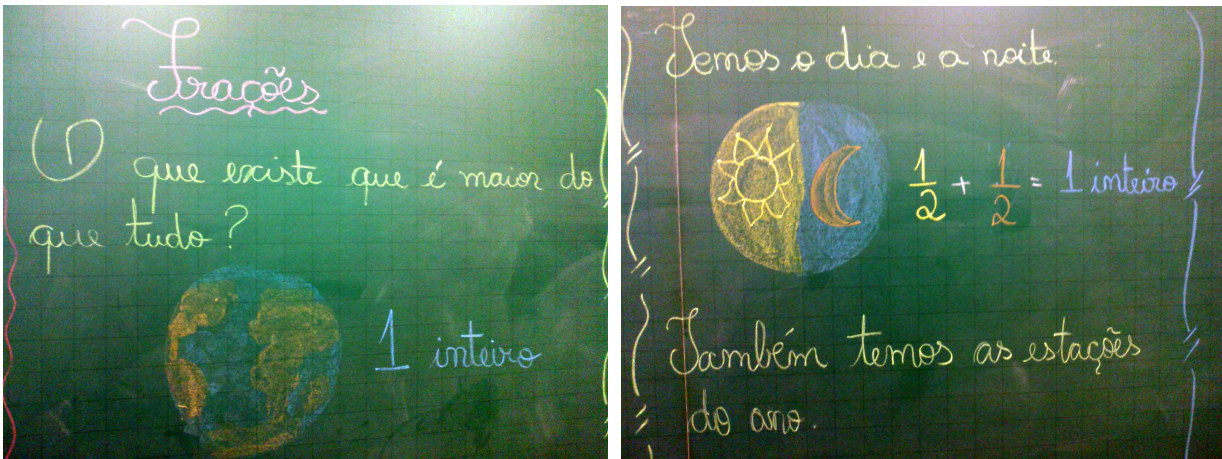 Frações
O que existe que é maior do
que tudo?
1 inteiro
Temos o dia e a noite.
1/2 + 1/2 = 1 inteiro
Também temos as estações
do ano.